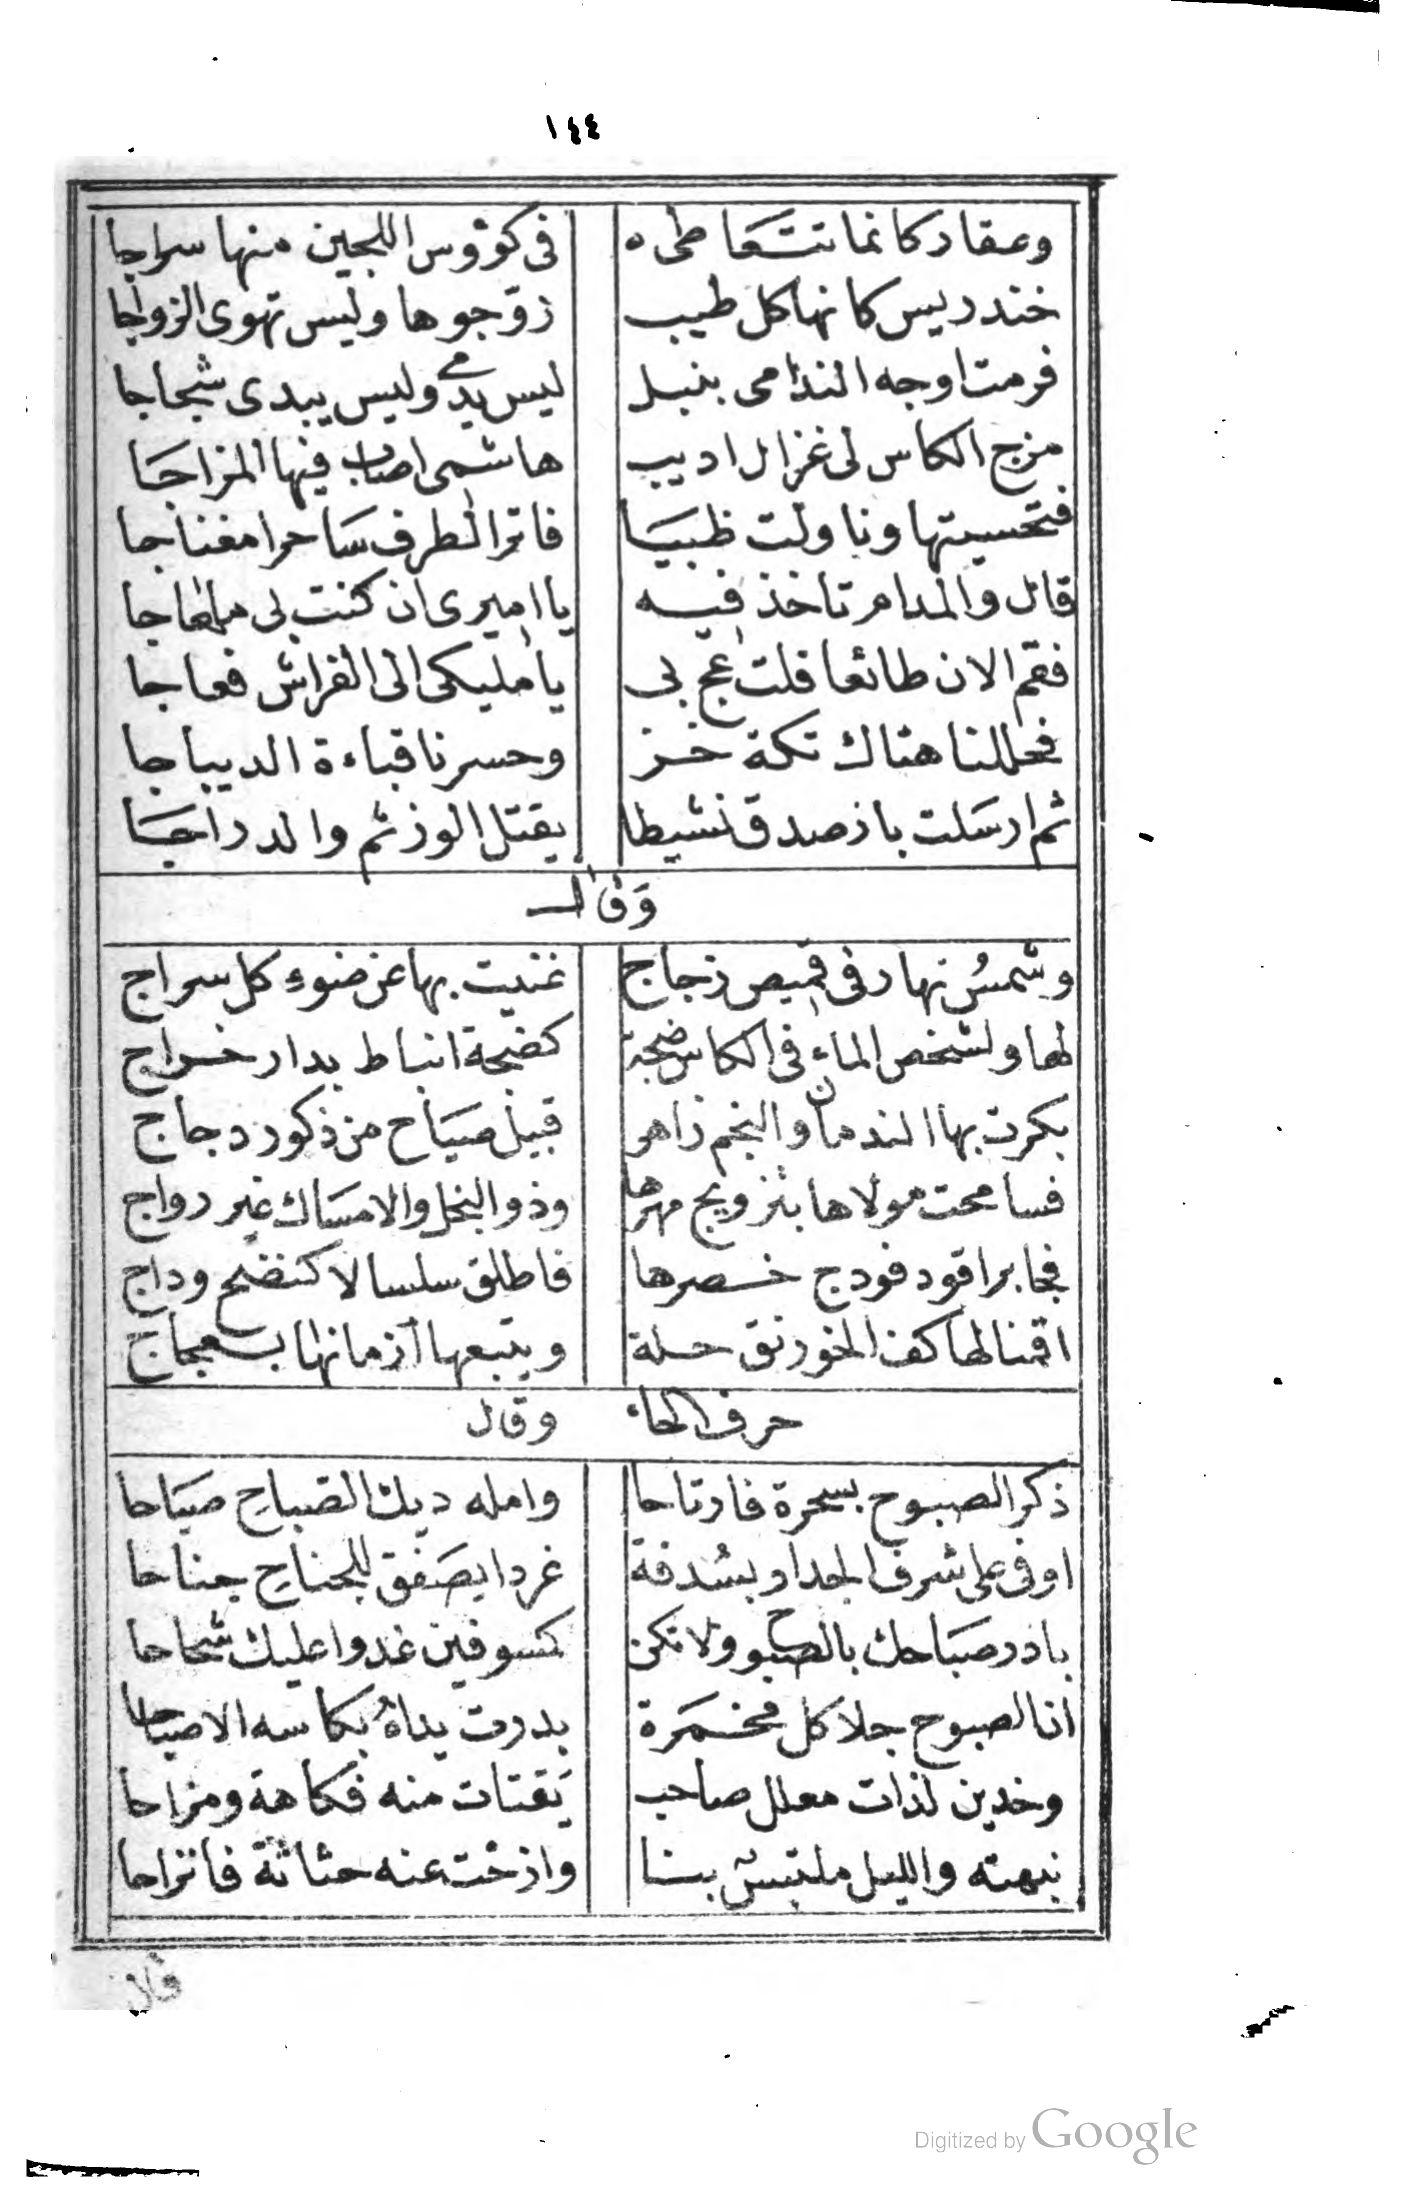 ١٤٤
وعقار كانما نتعاطى ه في كؤوس اللجين منها سراجا
خندريس كانها كل طيب زوجوها وليس تهوى الزواجا
فرمت اوجه الندامى بنبل ليس يدمي وليس يبدى شجاجا
مزج الكاس لى غزال اديب هاشمى اصاب فيها المزاجا
فتحسيتها وناولت ظبيا فاتر الطرف ساحرا مغناجا
قال والمدام تاخذ فيه يا اميرى ان كنت لى
فقم الان طائعا قلت عج بى يا مليكى الى الفراش فعاجا
فحللنا هناك تكة خز وحسرنا قباءة الديباجا
ثم ارسلت باز صدق نشيطا يقتل الوز ثم والدراجا
وقال
وشمس نهار فى قميص زجاج غنيت بها عن ضوء كل سراج
لها ولشخص الماء فى الكاس ضجة كضجة انباط بدار خراج
بكرت بها الندمان والنجم زاهر قبيل صياح من ذكور دجاج
فسامحت مولاها بتزويج مهرها وذو البخل والامساك غير رواج
فجا براقود فودج خصرها فاطلق سلسالا كنضح وداج
اقمنا لها كف الخورنق حلة ويتبعها
حرف الحاء وقال
ذكر الصبوح بسحرة فارتاحا وامله ديك الصباح صياحا
اوفى على شرف الجدار بسدفة غردا يصفق للجناح جناحا
بادر صباحك بالصبوح ولا تكن كمسوفين غدوا عليك شحاحا
ان الصبوح جلا كل مخمرة بدرت يداه بكاسه الاصباحا
وخدين لذات معلل صاحب يقتات منه فكاهة ومزاحا
نبهته والليل ملتبس بنا وازحت عنه حثاثة فانزاحا
قال
Digitized by Google